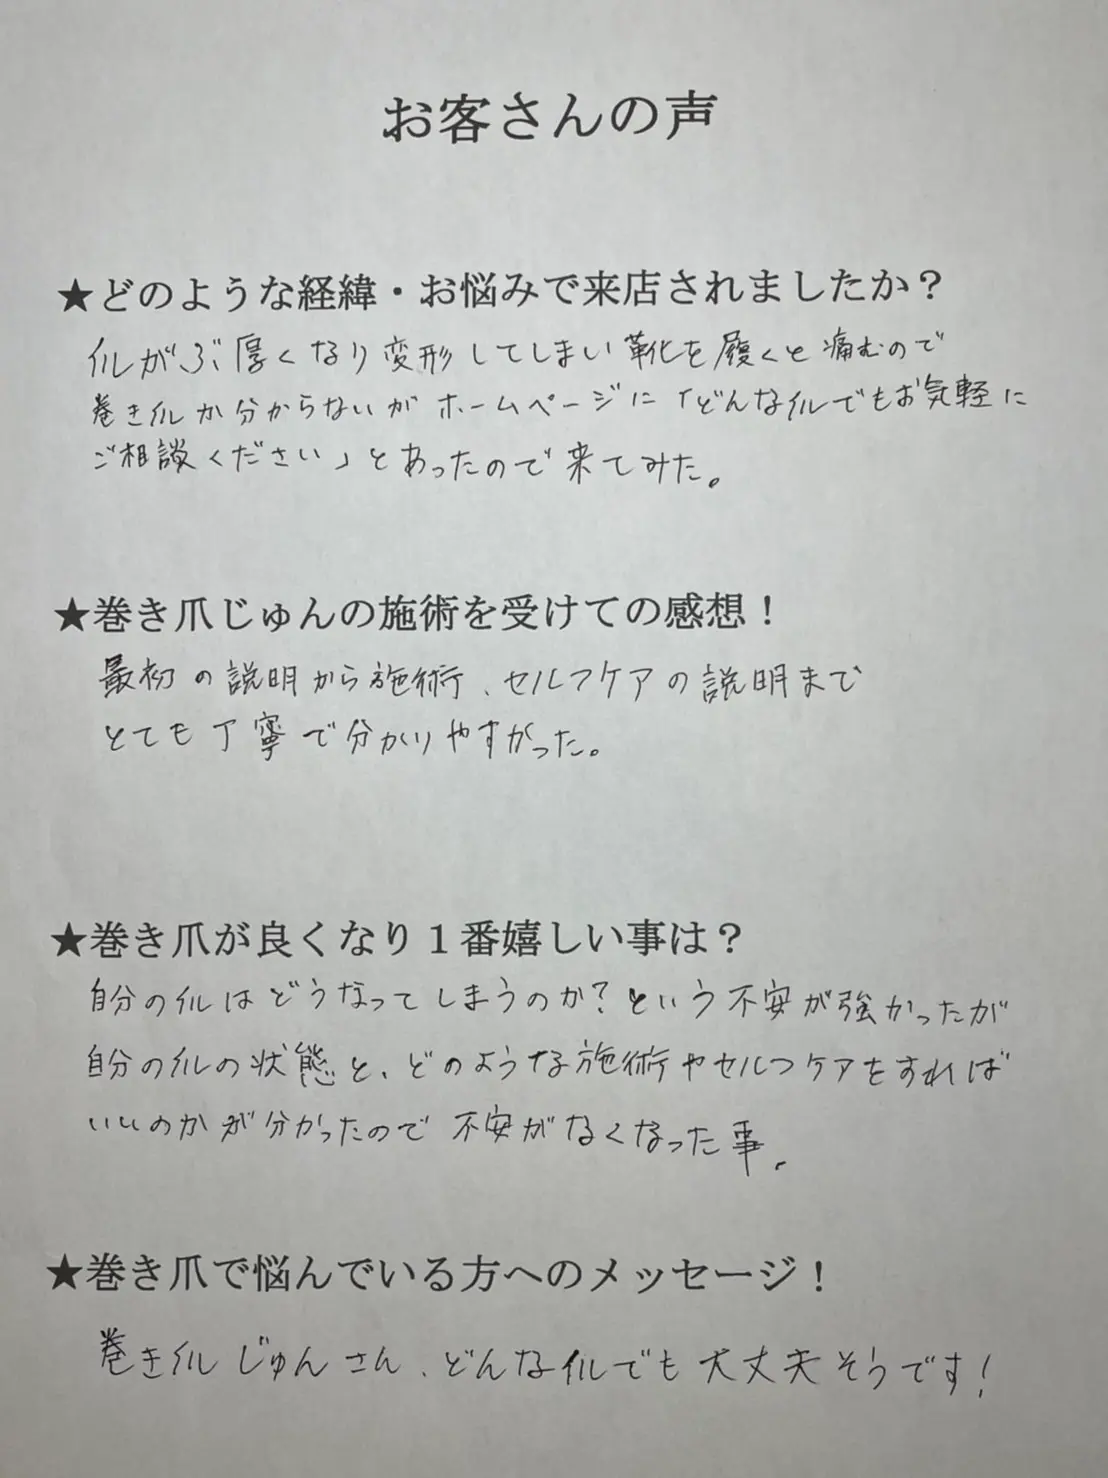 お客さんの声
★どのような経緯・お悩みで来店されましたか？
爪がぶ厚くなり変形してしまい靴を履くと痛むので
巻き爪か分からないがホームページに「どんな爪でもお気軽に
ご相談ください」とあったので来てみた。
★巻き爪じゅんの施術を受けての感想！
最初の説明から施術、セルフケアの説明まで
とても丁寧で分かりやすかった。
★巻き爪が良くなり１番嬉しい事は？
自分の爪はどうなってしまうのか？という不安が強かったが
自分の爪の状態と、どのような施術やセルフケアをすれば
いいのかが分かったので不安がなくなった事。
★巻き爪で悩んでいる方へのメッセージ！
巻き爪じゅんさん、どんな爪でも大丈夫そうです！